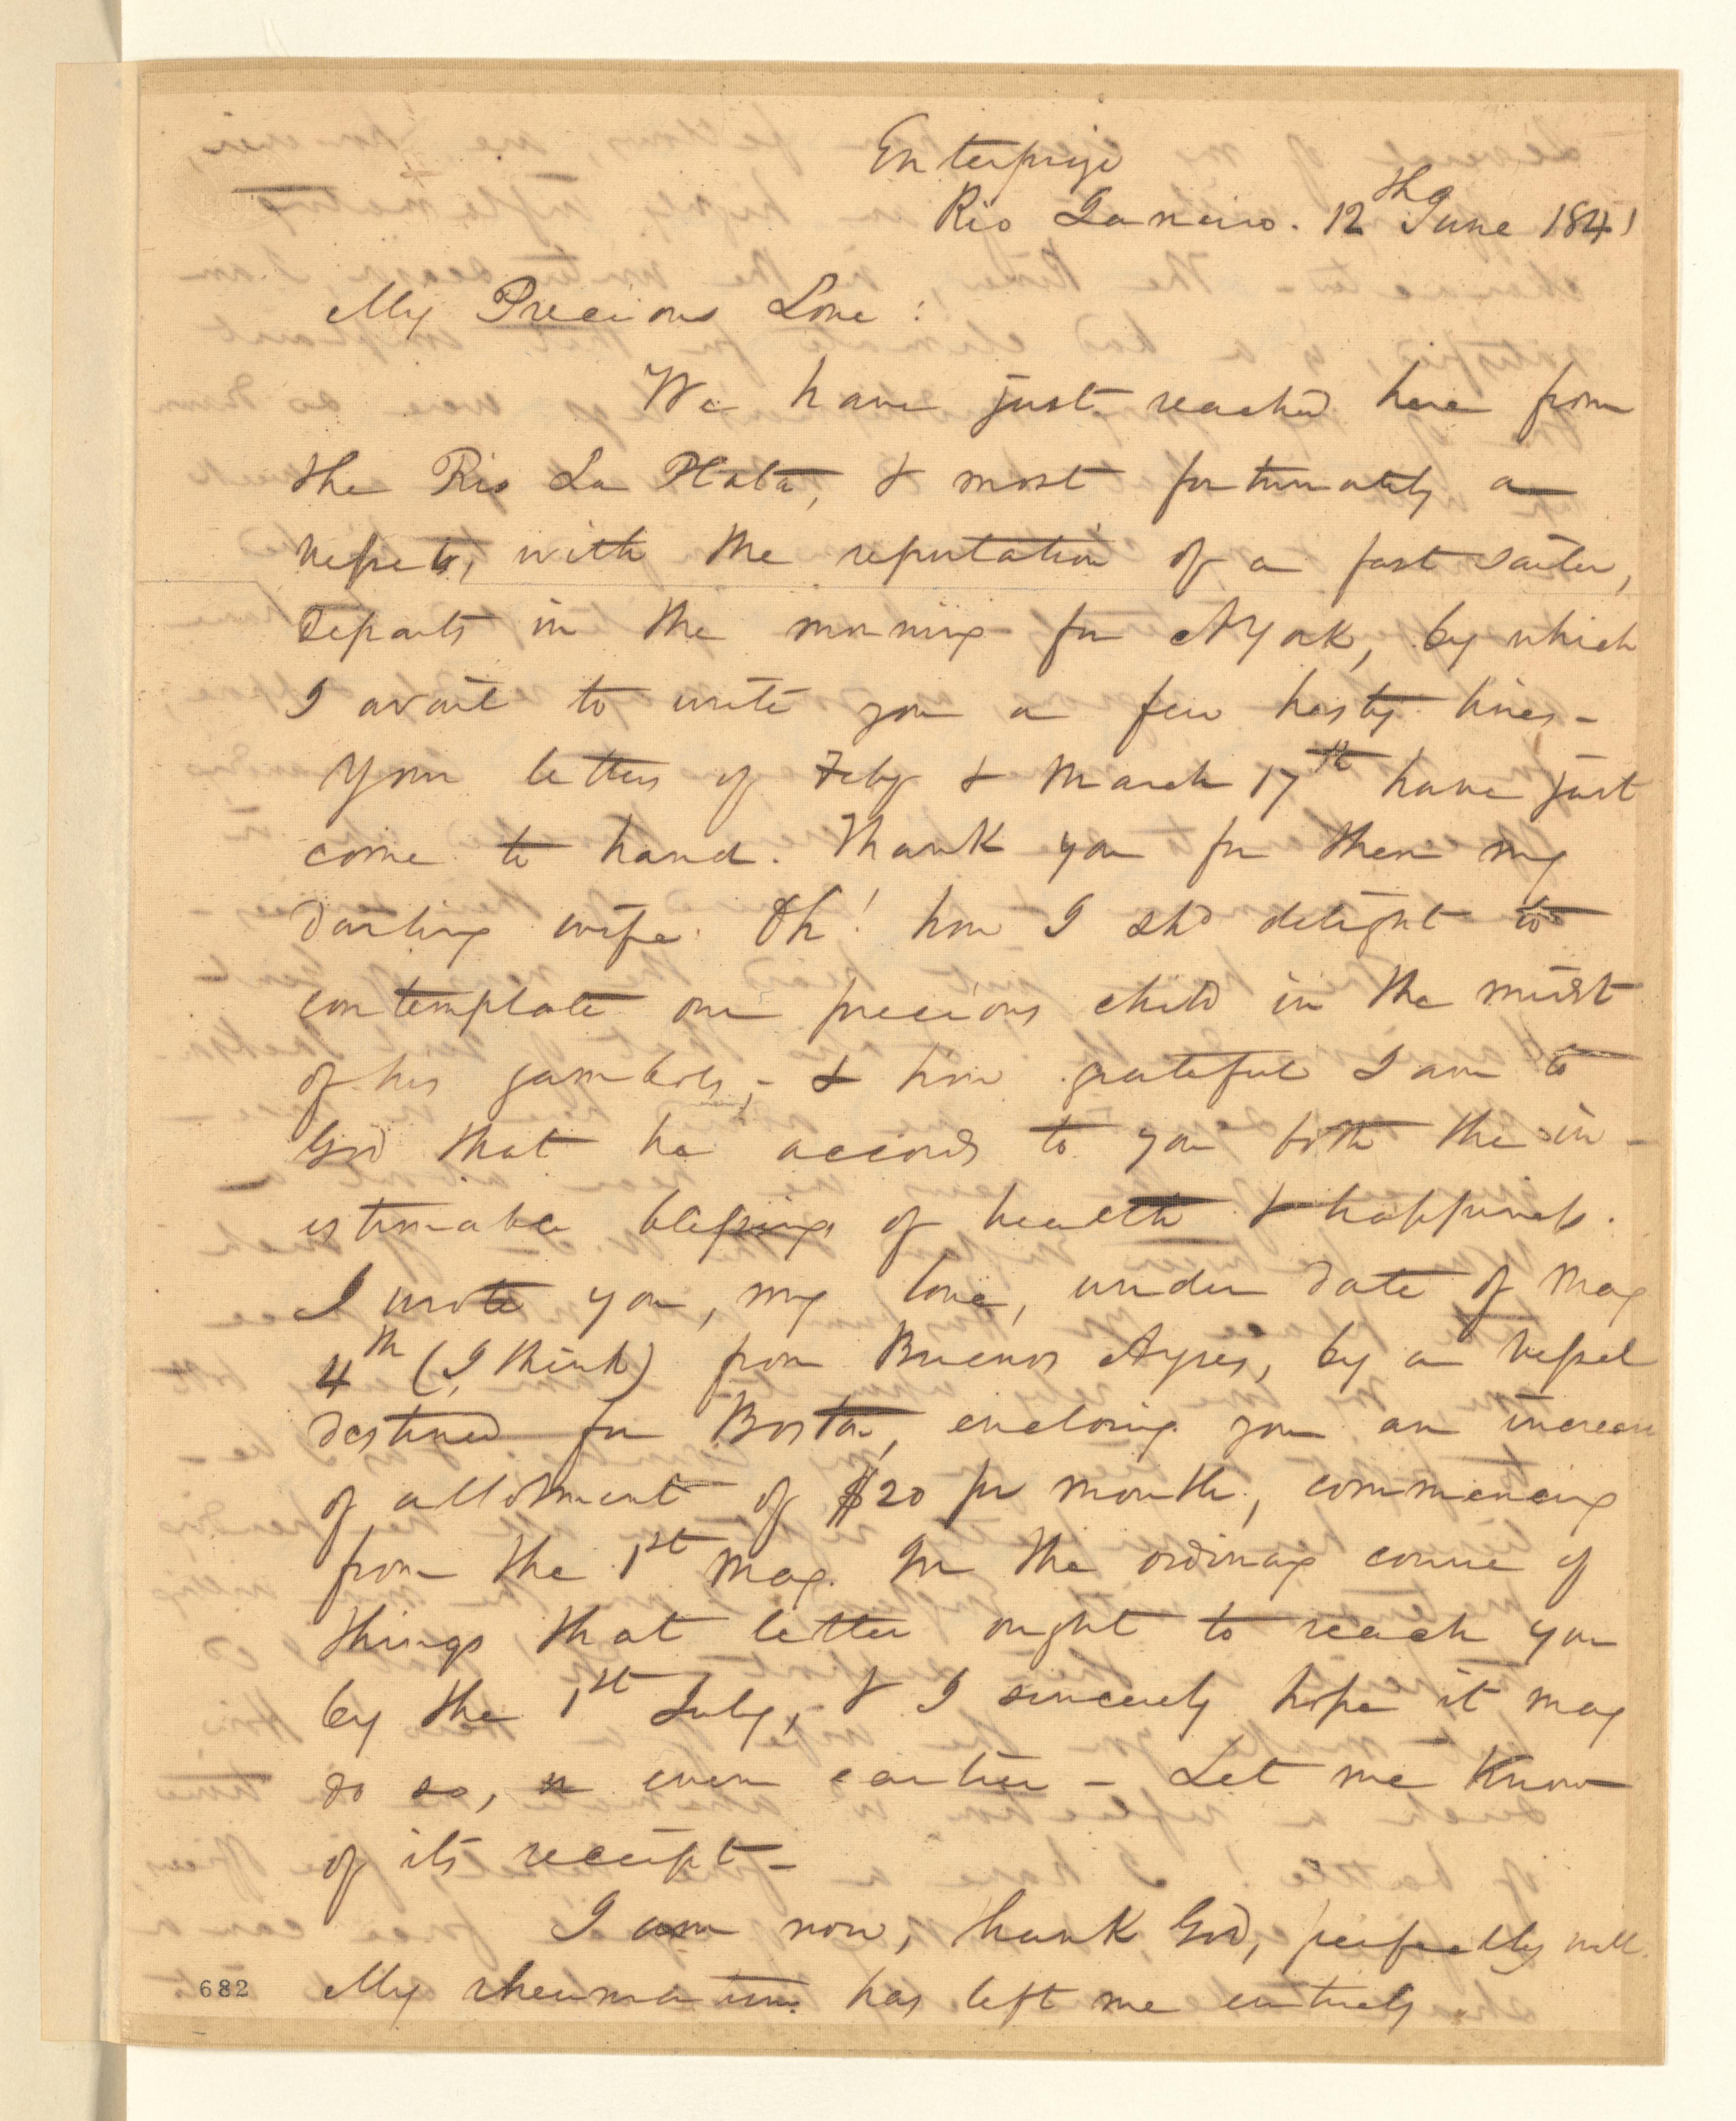 Enterprize
Rio Janeiro. 12th June 1841
My Precious Love:
We have just reached here from
the Rio La Plata, & most fortunately a
vessel, with the reputation of a fast sailer,
departs in the morning for NYork, by which
I avail to write you a few hasty lines -
Your letters of Feby & March 17th have just
come to hand. Thank you for them my
darling wife. Oh! how I shd delight to
contemplate our precious child in the midst
of his gambols, - & how grateful I am to
God that he accords to you both the in-
estimable blessings of health & happiness.
I wrote you, my love, under date of May
4th (I think) from Buenos Ayres, by a vessel
destined for Boston, enclosing you an increase
of allotment of $20 pr month, commencing
from the 1st May. In the ordinary course of
things that letter ought to reach you
by the 1st July, & I sincerely hope it may
do so, or even earlier - Let me know
of its receipt -
I am now, thank God, perfectly well.
My rheumatism has left me entirely
682